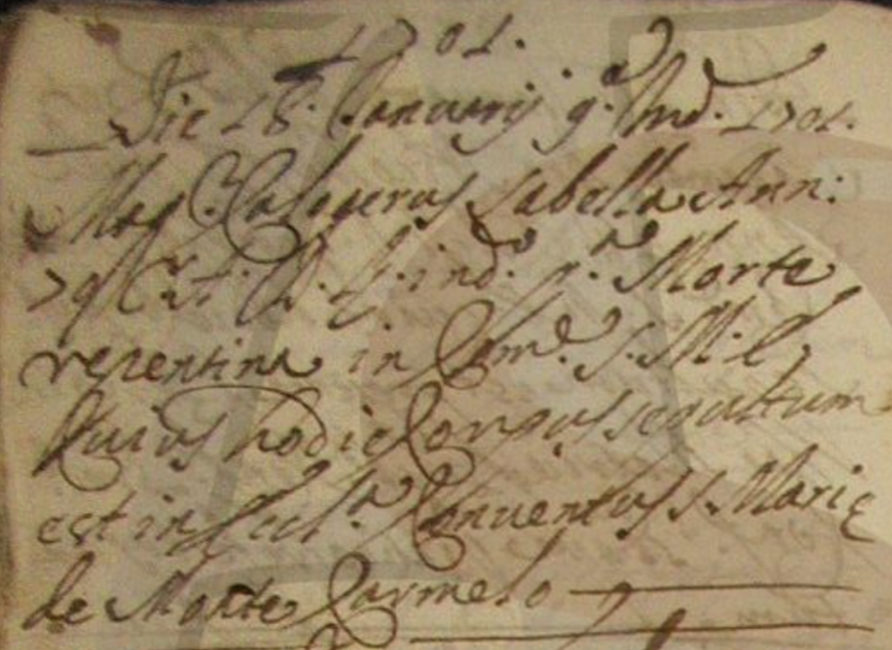 1701.
Die 18. Januarij 9.ª Ind. 1701.
Mag.r Calogerus Sabella Ann:
79 C.
ind.º p.ª Morte
repentina in Com.e S. M. E.
Cuius hodie Corpus sepultum
est in Eccl.ª Conventus S. Marie
de Monte Carmelo